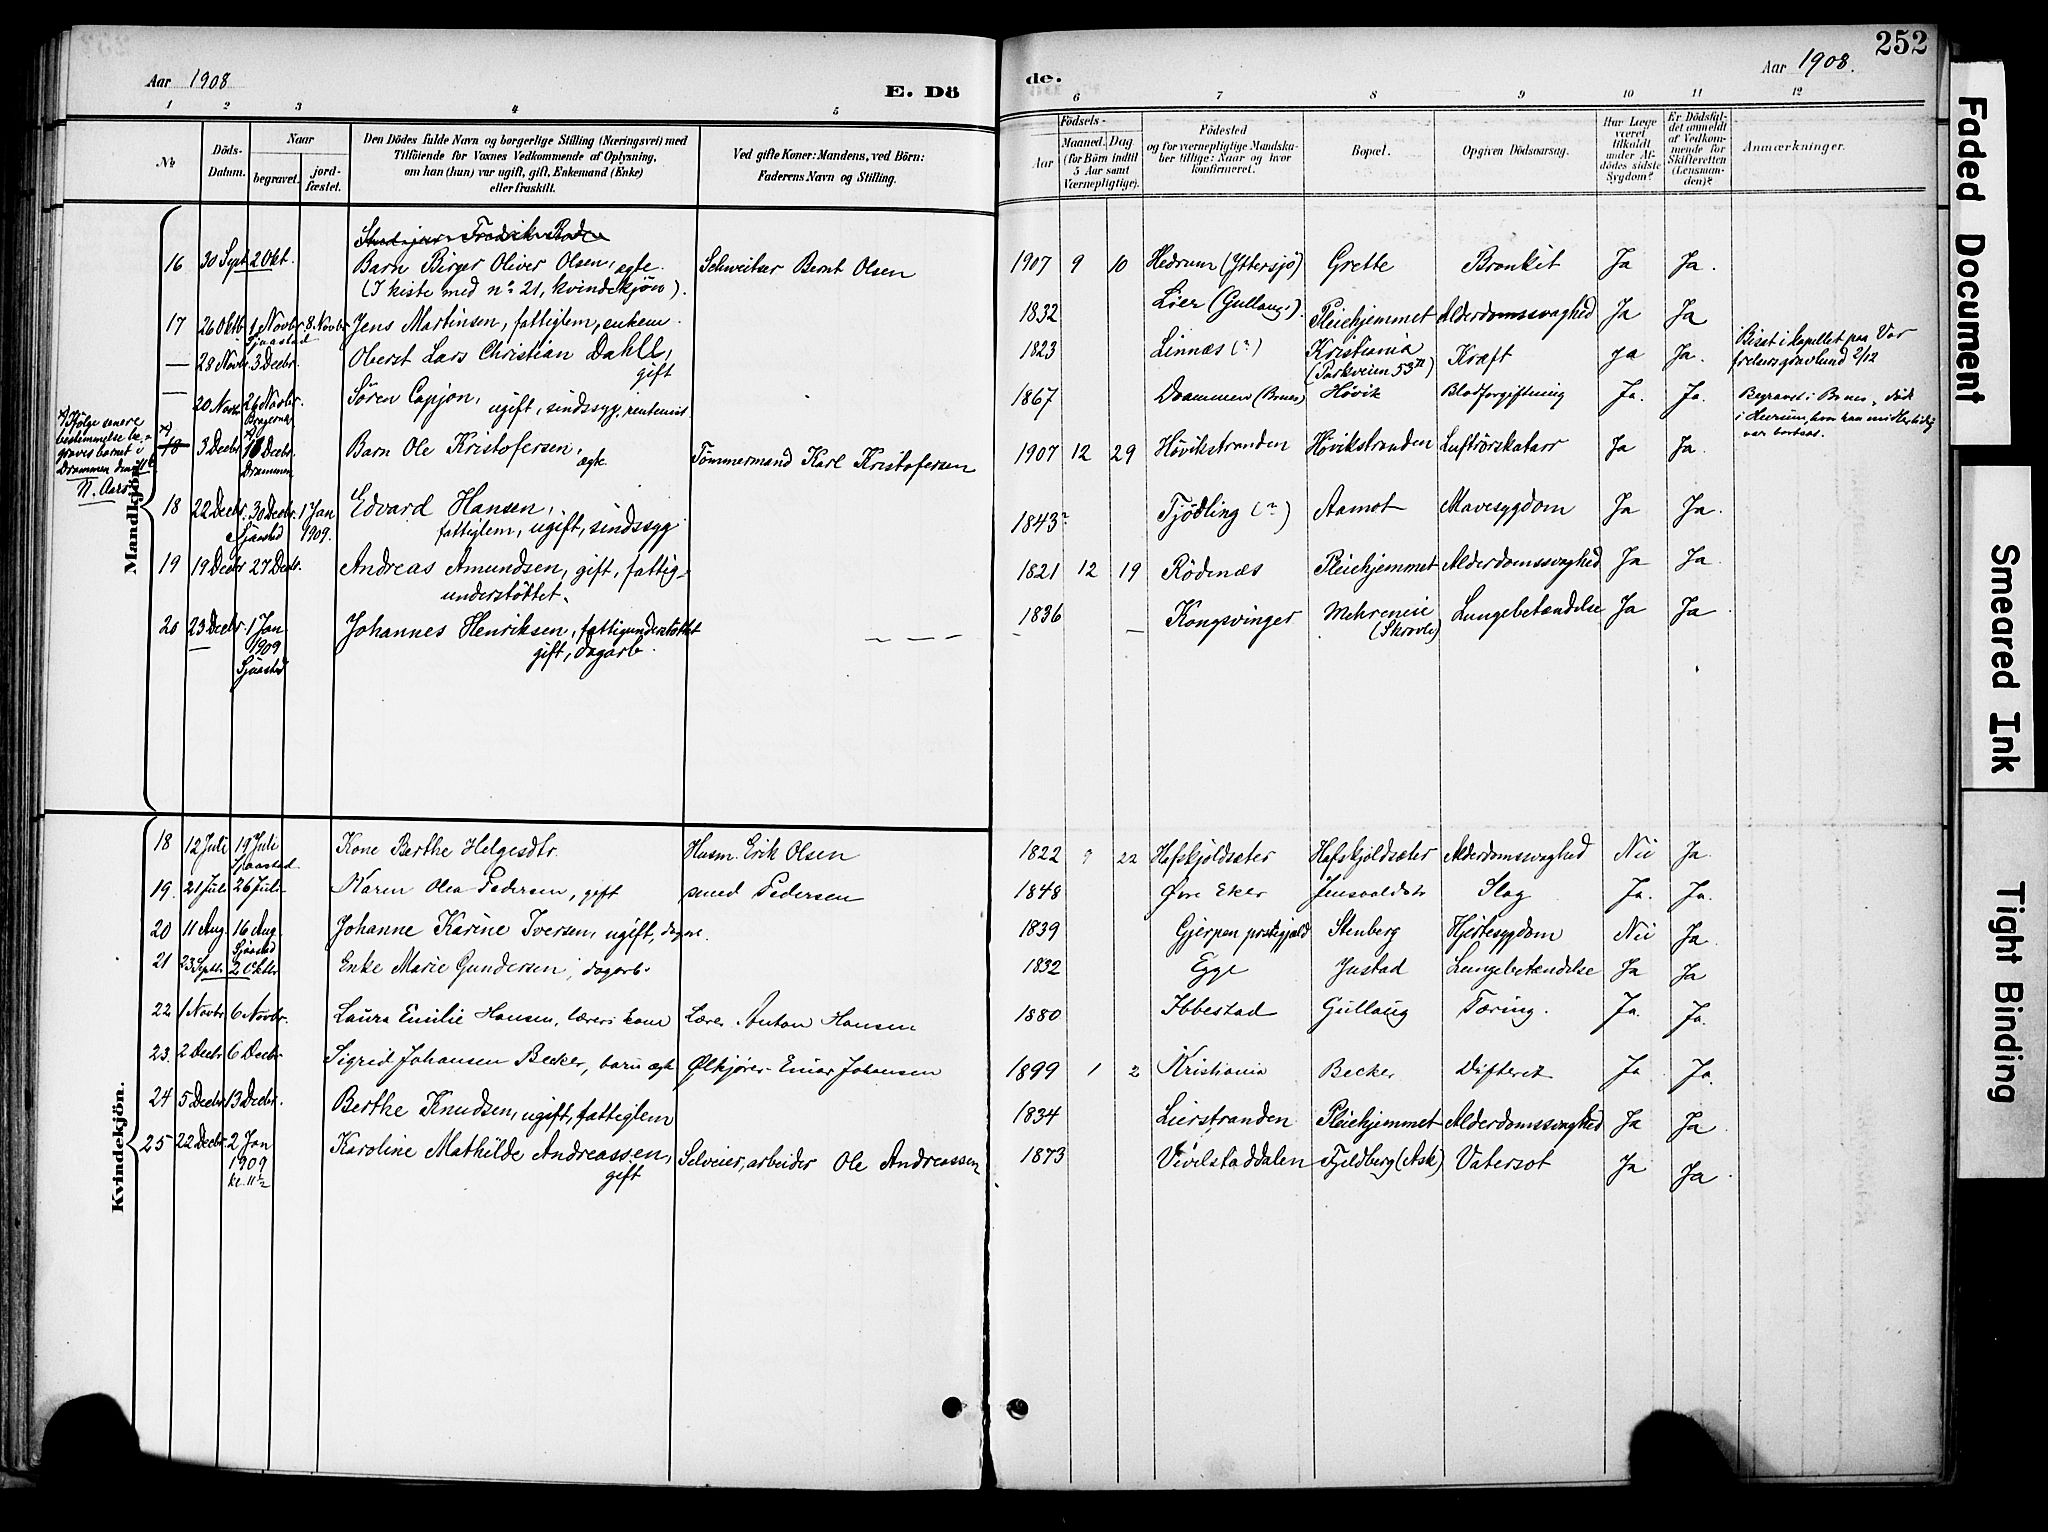 252
Aar 1908
E. Dö
de.
Aar 1908.
1 2 3 4 5 6 7 8 9 10 11 12
No
Döds-Datum.
Naar
begravet.
jord-fæstet.
Den Dödes fulde Navn og borgerlige Stilling (Næringsvei) med
Tilföiende for Voxnes Vedkommende af Oplysning,
om han (hun) var ugift, gift, Enkemand (Enke)
eller fraskilt.
Ved gifte Koner: Mandens, ved Börn:
Faderens Navn og Stilling.
Födsels-
Aar
Maaned. Dag
(for Börn indtil
5 Aar samt
Værnepligtige).
Födested
og for værnepligtige Mandska-
ber tillige: Naar og hvor
konfirmeret.
Bopæl.
Opgiven Dödsaarsag.
Har Læge
været
tilkaldt
under Af-
dödes sidste
Sygdom?
Er Dödsfal-
det anmeldt
af Vedkom-
mende for
Skifteretten
(Lensman-
den)?
Anmærkninger.
Mandkjön.
16 30 Sept 2 Okt. Barn Birger Oliver Olsen, ægte. Schweitser Bernt Olsen 1907 9 10 Hedrum (Yttersjö) Grette Bronkit Ja Ja.
(I kiste med no 21, kvindekjön).
17 26 Oktb 1 Novbr 8 Novbr Jens Martinsen, fattiglem, enkem. 1832 Lier (Gullaug) Pleiehjemmet Alderdomssvaghed Ja Ja
Sjaastad
— 28 Novbr 3 Decbr Oberst Lars Christian Dahll, gift 1823 Linnæs (?) Kristiania (Parkveien 53 II) Kræft Ja Ja. Biset i kapellet paa Vor
frelsers gravlund 2/12
— 20 Novbr 26 Novbr. Bragernæs Sören Capjon, ugift, sindssyg, rentenist 1867 Drammen (Brnes) Hövik Blodforgiftning Ja. Ja. Begravet i Brnes, död
i Heerum, hvor han midlertidig
var bortsat.
x) Ifölge senere
bestemmelse be-
graves barnet i
Drammen den
N. Aars.
x) 18 3 Decbr Decbr Drammen Barn Ole Kristofersen, ægte. Tömmermand Karl Kristofersen 1907 12 29 Hövikstranden Hövikstranden Luftrörskatarr Ja Ja.
18 22 Decbr 30 Decbr. Sjaastad 1 Jan 1909. Edvard Hansen, 1843? Tjödling (?) Aamot Mavesygdom Ja Ja.
fattiglem, ugift, sindssyg
19 19 Decbr 27 Decbr. Andreas Amundsen, gift, fattig- 1821 12 19 Rödenæs Pleiehjemmet Alderdomssvaghed Ja Ja.
understöttet.
20 23 Decbr 1 Jan 1909 Sjaastad Johannes Henriksen, fattigunderstöttet — — — 1836 — Kongsvinger Mehreneie (Skrovly) Lungebetændelse Ja Ja
gift, dagarb.
Kvindekjön.
18 12 Juli 19 Juli Sjaastad Kone Berthe Helgesdtr. Husm. Erik Olsen 1822 9 22 Hafskjöldsæter Hafskjöldsæter Alderdomssvaghed Nei Ja.
19. 21 Juli 26 Juli Karen Olea Pedersen, gift smed Pedersen 1848 Øvre Eker Slag Ja. Ja.
20 11 Aug. 16 Aug. Sjaastad Johanne Karine Iversen, ugift, 1839 Gjerpen prstgjæld Stenberg Hjertesygdom Nei Ja.
21 23 Septr. 2 Oktbr Enke Marie Gundersen, dagarb. 1832 Egge Justad Lungebetændelse Ja Ja
22 1 Novbr 6 Novbr. Laura Emilie Hansen, lærers kone Lærer Anton Hansen 1880 Ibbestad Gullaug Tæring. Ja. Ja.
23. 2 Decbr 6 Decbr Sigrid Johansen Becker, barn ægte Ølkjörer Einar Johansen 1899 1 2 Kristiania Becker Difterit Ja Ja.
24 5 Decbr 13 Decbr. Berthe Knudsen, ugift, fattiglem 1834 Lierstranden Pleiehjemmet Alderdomssvaghed Ja Ja
25 22 Decbr. 2 Jan 1909 kl. 11½ Karoline Mathilde Andreassen, gift Selveier, arbeider Ole Andreassen 1873 Vivelstaddalen Fjeldberg (Ask) Vatersot Ja Ja.
Faded Document
Smeared Ink
Tight Binding